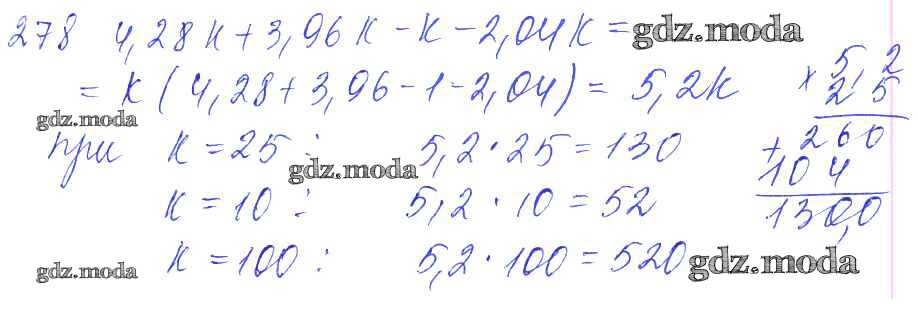 278 4,28к + 3,96к - к - 2,04к = gdz.moda
= к (4,28 + 3,96 - 1 - 2,04) = 5,2к
gdz.moda
при к = 25 : 5,2 · 25 = 130
gdz.moda
к = 10 : 5,2 · 10 = 52
к = 100 : 5,2 · 100 = 520 gdz.moda
gdz.moda
5,2
× 25
+ 260
104
130,0